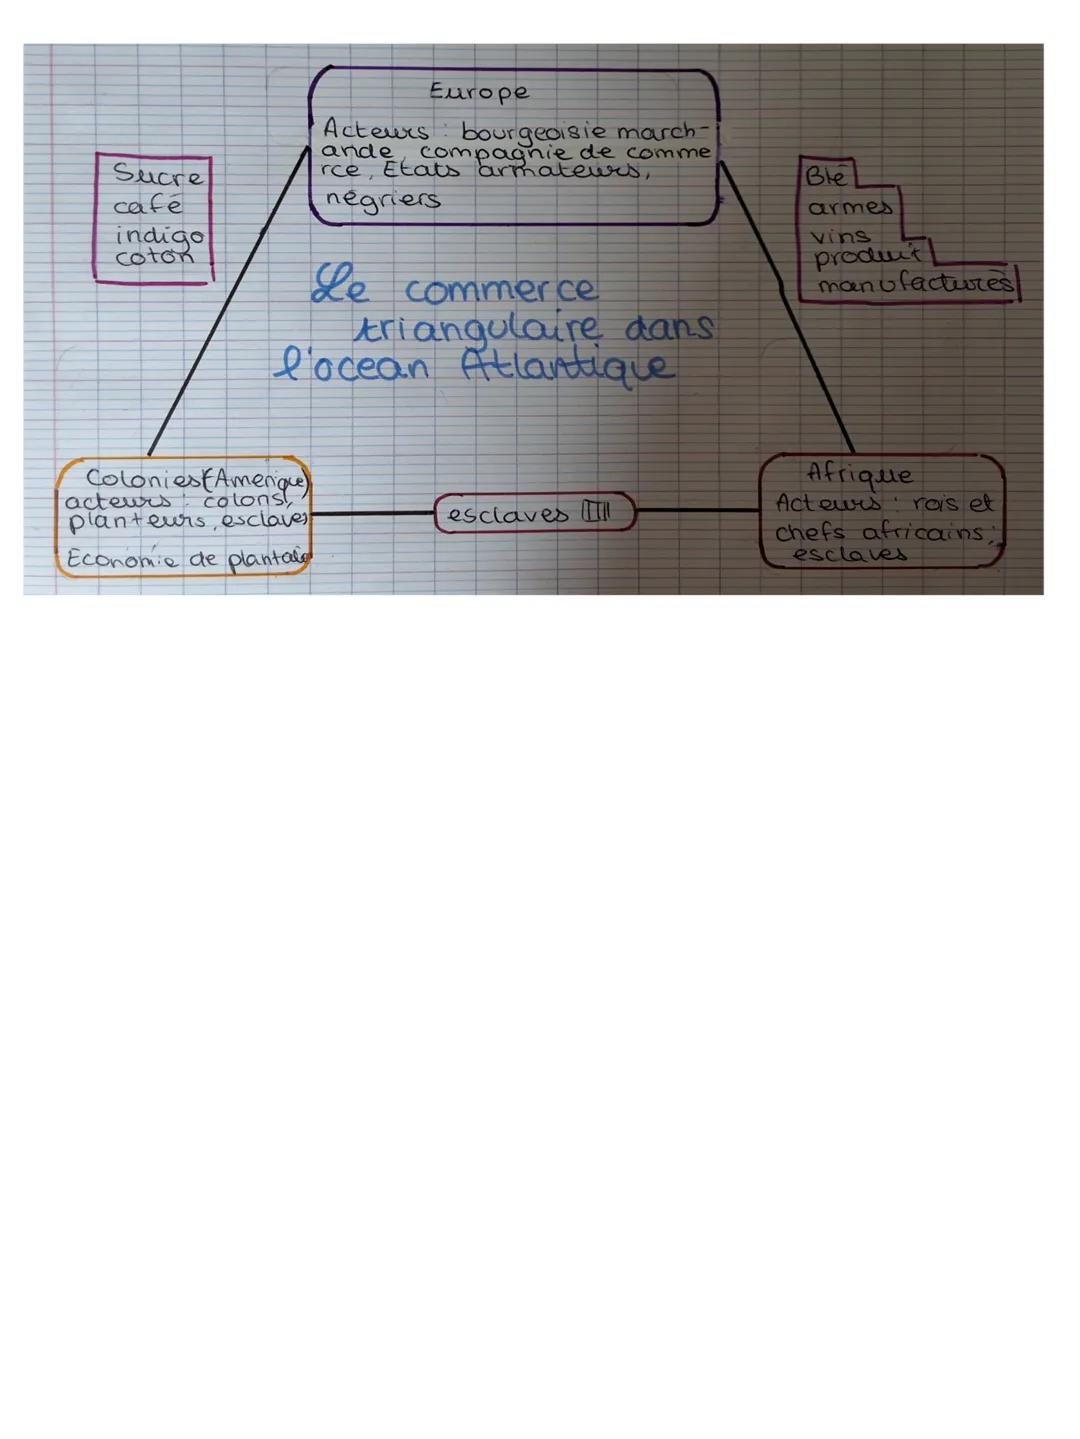 Europe
Acteurs : bourgeoisie march-
ande, compagnie de comme
rce, Etats armateurs,
négriers
Sucre
café
indigo
coton
Blé
armes
vins
produit
manufacturés
Le commerce
triangulaire dans
l'ocean Atlantique
Colonies (Amerique)
acteurs : colons,
planteurs, esclaves
Economie de
esclaves III
Afrique
Acteurs : rois et
chefs africains,
esclaves